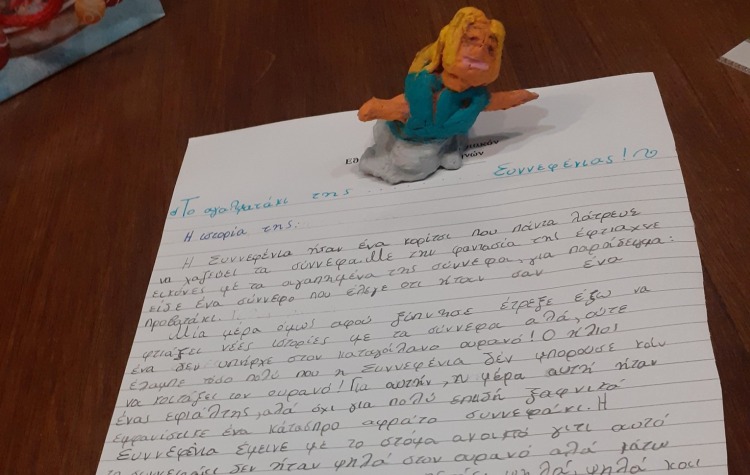 Το αγαλματάκι της Συννεφένιας!
Η ιστορία της:
Η Συννεφένια ήταν ένα κορίτσι που πάντα λάτρευε
να χαζεύει τα σύννεφα. Με την φαντασία της έφτιαχνε
εικόνες με τα αγαπημένα της σύννεφα, για παράδειγμα:
είδε ένα σύννεφο που έλεγε οτι ήταν σαν ένα
προβατάκι!
Μία μέρα όμως αφού ξύπνησε έτρεξε έξω να
φτιάξει νέες ιστορίες με τα σύννεφα αλά, ούτε
ένα δεν υπήρχε στον καταγάλανο ουρανό! Ο ήλιος
έλαμπε τόσο πολύ που η Συννεφένια δεν μπορούσε καν
να κοιτάξει τον ουρανό! Για αυτήν, η μέρα αυτή ήταν
ένας εφιάλτης, αλά όχι για πολύ επειδή ξαφνικά
εμφανίστηκε ένα κάτασπρο αφράτο συννεφάκι. Η
Συννεφένια έμεινε με το στόμα ανοικτό γιτι αυτό
το συννεφάκι δεν ήταν ψηλά στον ουρανό αλά κάτω
ψηλά, ψηλά και